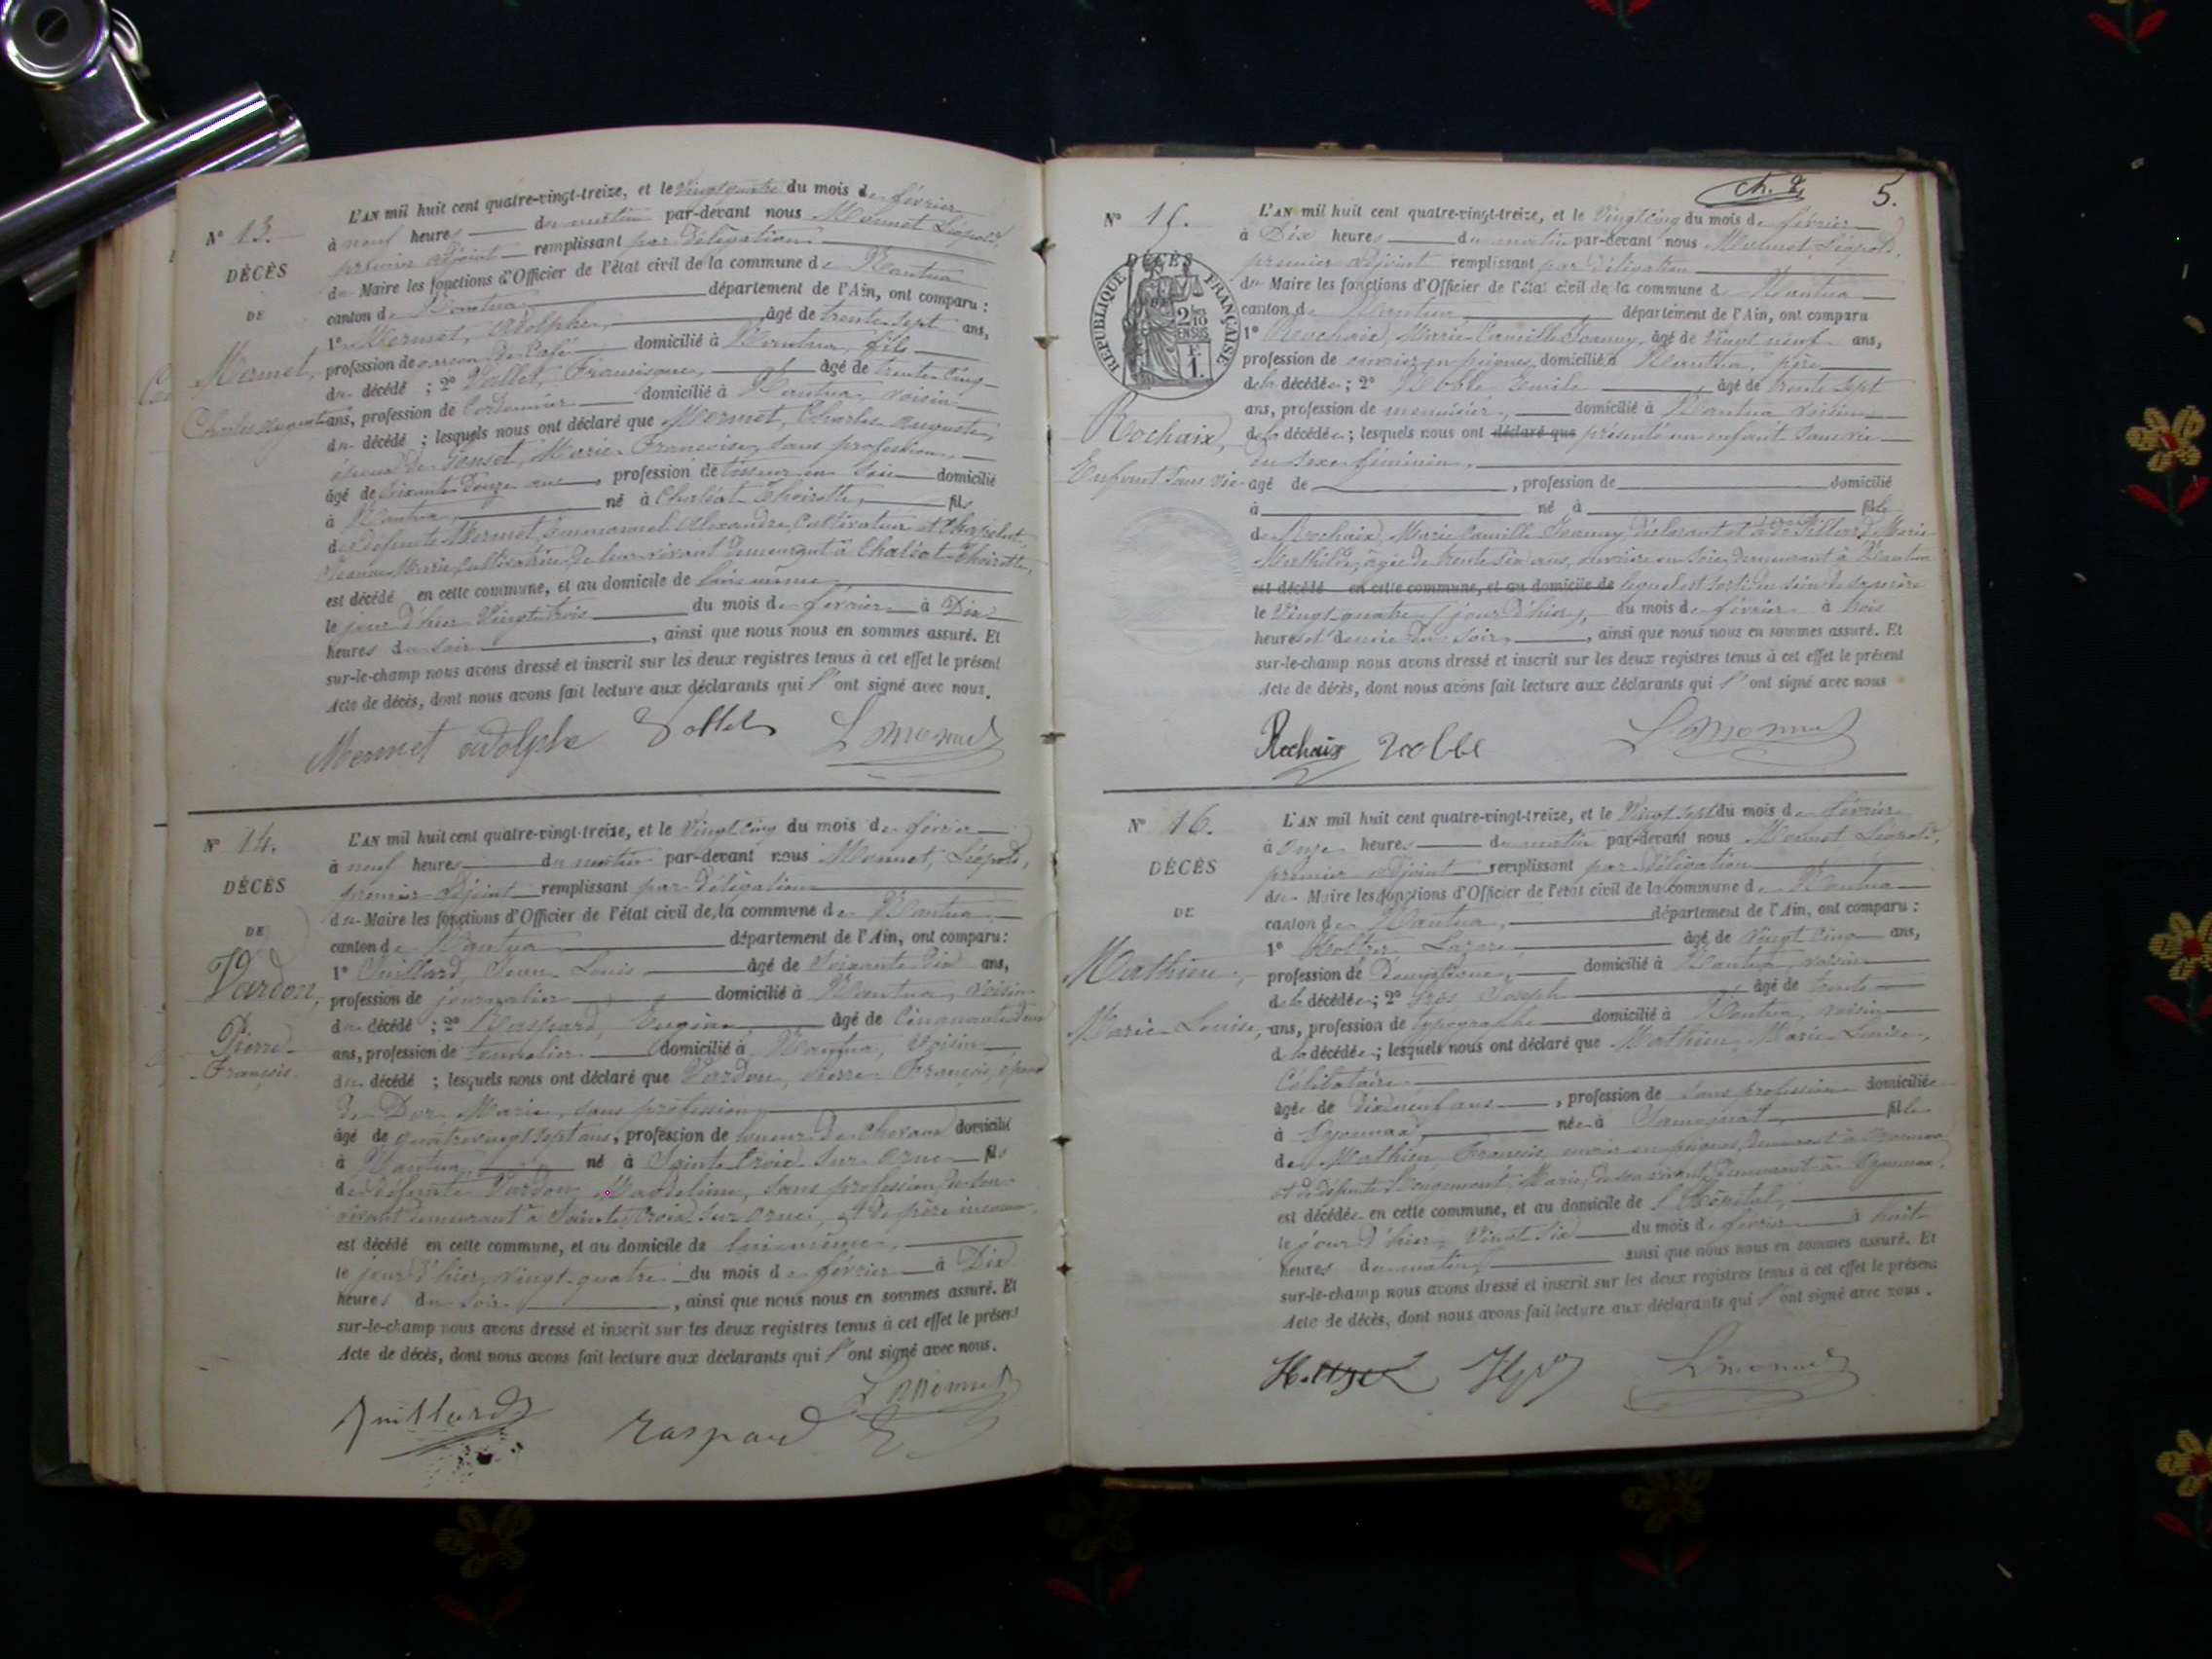 N° 13.
DÉCÈS
DE
Mermet,
Charles Auguste
L'AN mil huit cent quatre-vingt-treize, et le Vingt quatre du mois de février
à neuf heures du matin par-devant nous Monnet Léopold,
premier adjoint remplissant par délégation
du Maire les fonctions d'Officier de l'état civil de la commune de Nantua
canton de Nantua département de l'Ain, ont comparu :
1° Mermet, Adolphe, âgé de trente sept ans,
profession de garçon de Café domicilié à Nantua, fils
du décédé ; 2° Vallet, Francisque, âgé de trente cinq
ans, profession de Cordonnier domicilié à Nantua, voisin
du décédé ; lesquels nous ont déclaré que Mermet, Charles Auguste,
époux de Gonset, Marie Françoise, sans profession,
âgé de soixante douze ans, profession de tisseur en soie domicilié
à Nantua, né à Challeat Thoirette, fils
de défunts Mermet Emmanuel Alexandre, Cultivateur et
Marie, cultivatrice, de leur vivant demeurant à
est décédé en cette commune, et au domicile de lui-même,
le jour d'hier Vingt-trois du mois de février à Dix
heures du soir, ainsi que nous nous en sommes assuré. Et
sur-le-champ nous avons dressé et inscrit sur les deux registres tenus à cet effet le présent
Acte de décès, dont nous avons fait lecture aux déclarants qui l'ont signé avec nous.
Mermet adolphe Vallet L Monnet
N° 14.
DÉCÈS
DE
Vardon,
Pierre
François
L'AN mil huit cent quatre-vingt-treize, et le Vingt cinq du mois de février
à neuf heures du matin par-devant nous Monnet, Léopold,
premier adjoint remplissant par délégation
du Maire les fonctions d'Officier de l'état civil de la commune de Nantua
canton de Nantua département de l'Ain, ont comparu :
1° Juillard, Jean Louis âgé de Soixante Dix ans,
profession de journalier domicilié à Nantua, voisin
du décédé ; 2° Raspard, Eugène, âgé de Cinquante deux
ans, profession de tonnelier domicilié à Nantua, Voisin
du décédé ; lesquels nous ont déclaré que Vardon, Pierre François, époux
de Marie, sans profession,
âgé de quatre vingt sept ans, profession de loueur de chevaux domicilié
à Nantua, né à Sainte Croix fils
de défunte Vardon, Magdeleine, sans profession, de son
vivant demeurant à Sainte Croix et de père inconnu,
est décédé en cette commune, et au domicile de lui-même,
le jour d'hier, vingt-quatre du mois de février à Dix
heures du soir, ainsi que nous nous en sommes assuré. Et
sur-le-champ nous avons dressé et inscrit sur les deux registres tenus à cet effet le présent
Acte de décès, dont nous avons fait lecture aux déclarants qui l'ont signé avec nous.
Juillard Raspard E L Monnet
5.
N° 15.
DÉCÈS
DE
RÉPUBLIQUE FRANÇAISE
Rochaix,
Enfant sans vie
L'AN mil huit cent quatre-vingt-treize, et le Vingt cinq du mois de février
à Dix heures du matin par-devant nous Monnet Léopold,
premier adjoint remplissant par délégation
du Maire les fonctions d'Officier de l'état civil de la commune de Nantua
canton de Nantua département de l'Ain, ont comparu
1° Rochaix, Marie Camille Joanny, âgé de Vingt neuf ans,
profession de ouvrier en peignes, domicilié à Nantua, père
de la décédée ; 2° Noblé Emile, âgé de trente sept
ans, profession de menuisier, domicilié à Nantua voisin
de la décédée ; lesquels nous ont déclaré que présenté un enfant sans vie
du sexe féminin,
âgé de , profession de domicilié
à né à fille
de Rochaix, Marie Camille Joanny, déclarant et de Marie
Mathilde, âgée de trente six ans, ouvrière en soie, demeurant à Nantua
est décédé en cette commune, et au domicile de lequel est sorti du sein de sa mère
le Vingt quatre (jour d'hier), du mois de février à trois
heures et demie du soir, ainsi que nous nous en sommes assuré. Et
sur-le-champ nous avons dressé et inscrit sur les deux registres tenus à cet effet le présent
Acte de décès, dont nous avons fait lecture aux déclarants qui l'ont signé avec nous
Rochaix L Monnet
N° 16.
DÉCÈS
DE
Mathieu,
Marie Louise,
L'AN mil huit cent quatre-vingt-treize, et le Vingt sept du mois de février
à onze heures du matin par-devant nous Monnet Léopold,
premier adjoint remplissant par délégation
du Maire les fonctions d'Officier de l'état civil de la commune de Nantua
canton de Nantua, département de l'Ain, ont comparu :
1° Lazare âgé de vingt cinq ans,
profession de Domestique, domicilié à Nantua, voisin
de la décédée ; 2° Joseph âgé de trente
ans, profession de typographe domicilié à Nantua, voisin
de la décédée ; lesquels nous ont déclaré que Mathieu Marie Louise,
Célibataire
âgée de dix neuf ans, profession de sans profession domiciliée
à Oyonnax, née à Samognat, fille
de Mathieu, François, ouvrier en peignes, demeurant à Oyonnax
et de défunte Marie, de son vivant demeurant à Oyonnax,
est décédée en cette commune, et au domicile de l'Hôpital,
le jour d'hier, Vingt six du mois de février à huit
heures du matin, ainsi que nous nous en sommes assuré. Et
sur-le-champ nous avons dressé et inscrit sur les deux registres tenus à cet effet le présent
Acte de décès, dont nous avons fait lecture aux déclarants qui l'ont signé avec nous.
L Monnet